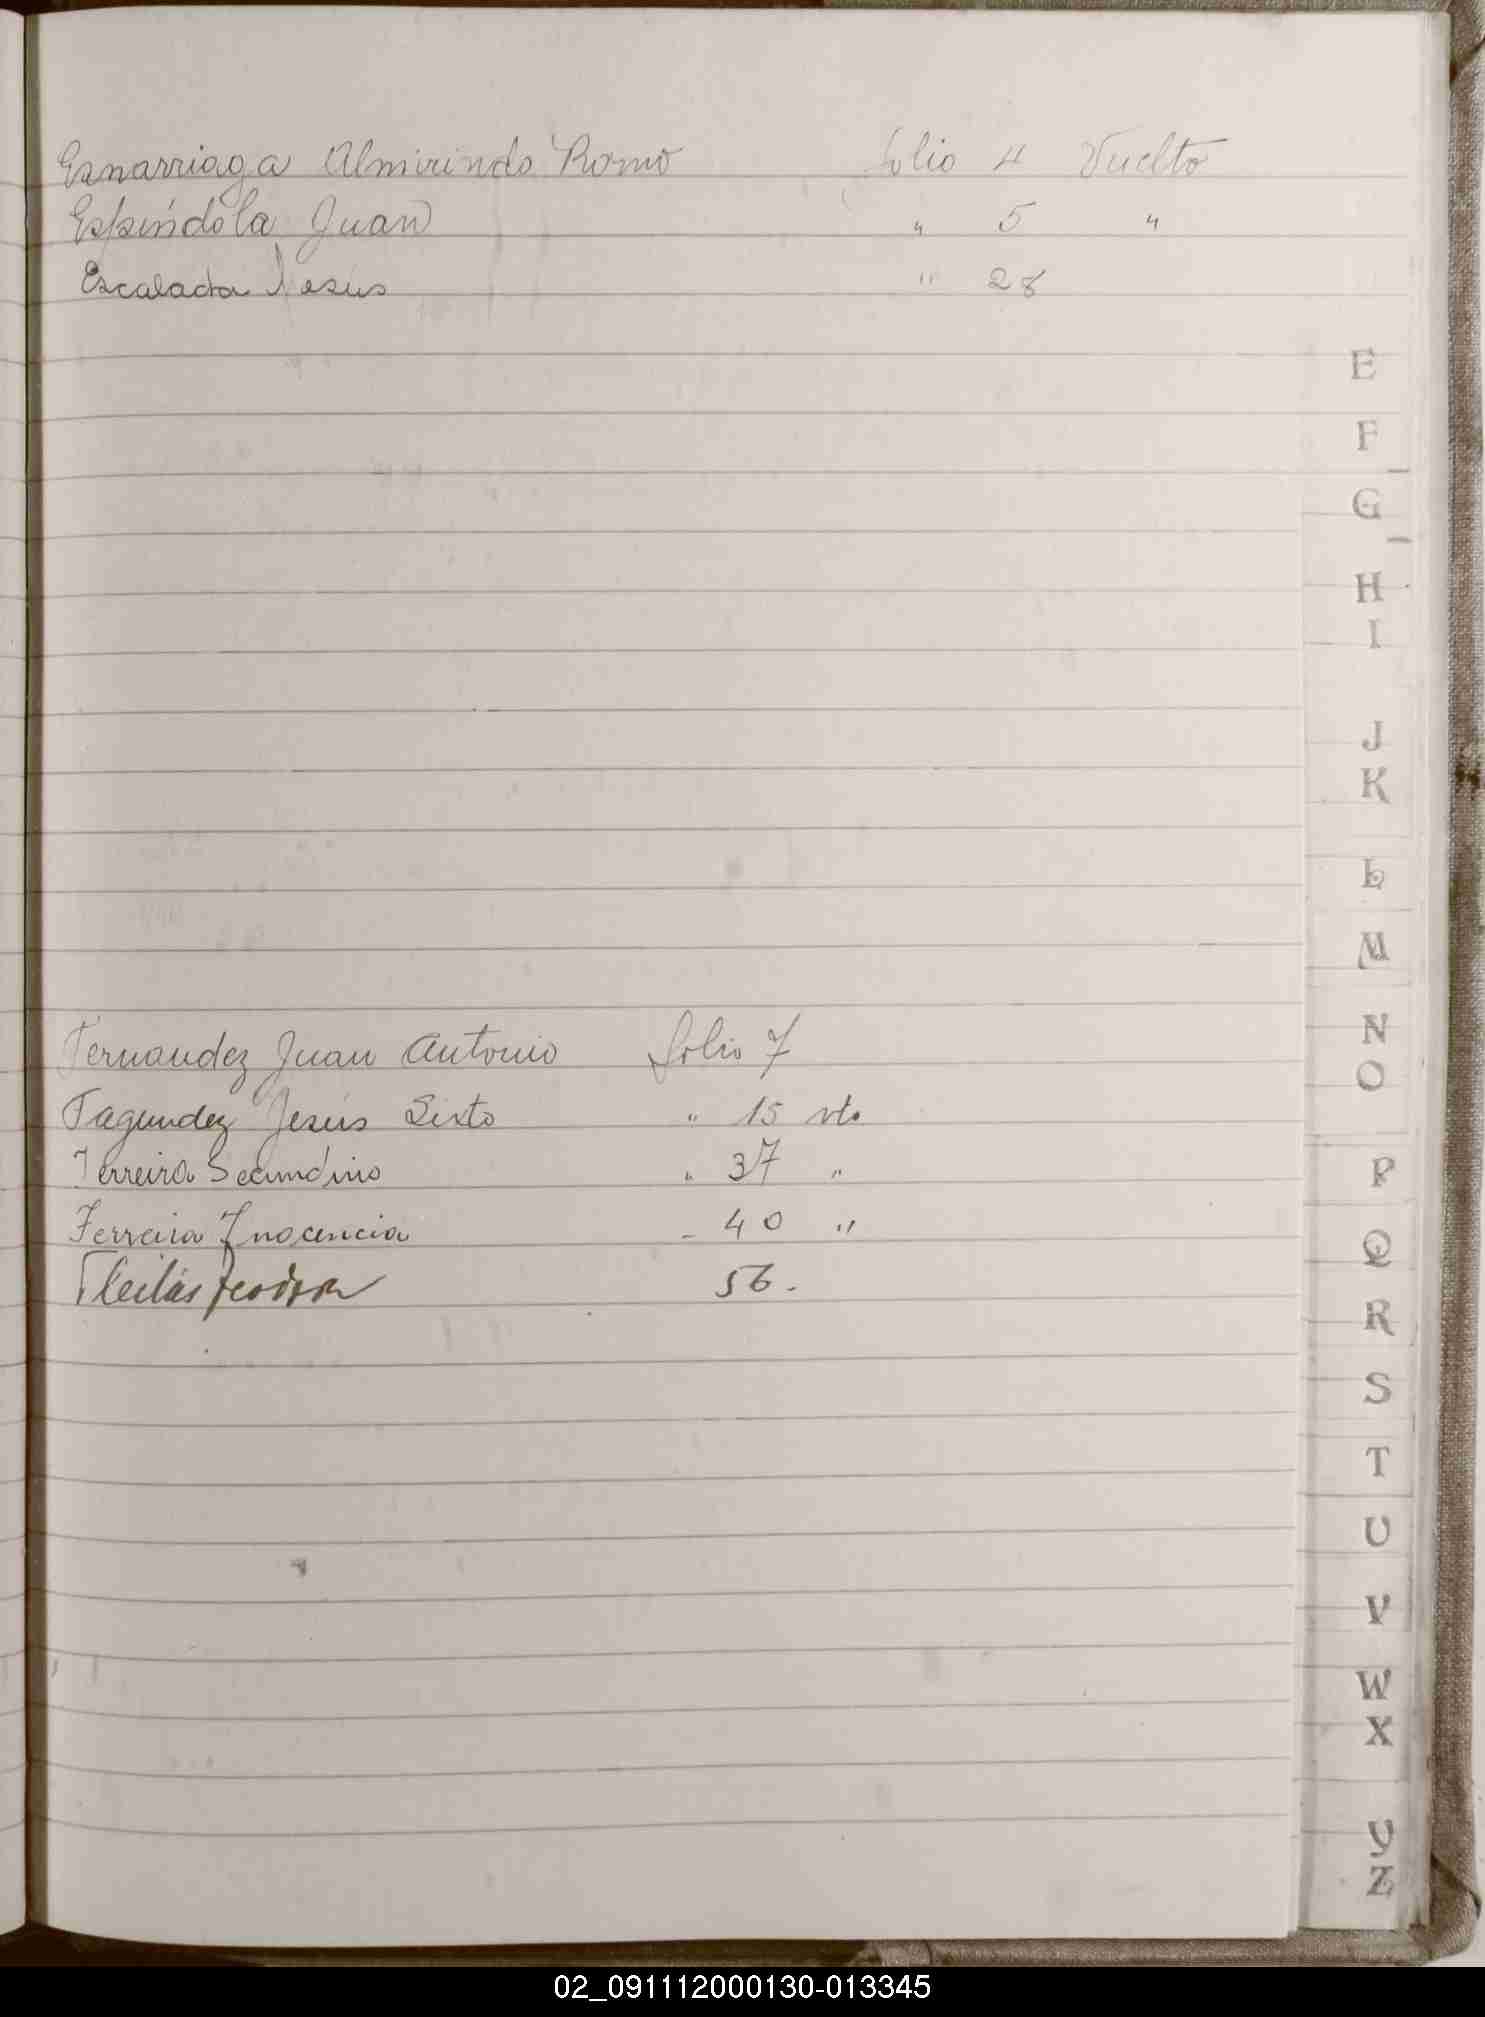 Esnarriaga Almirindo Romo Folio 4 Vuelto
Espíndola Juan " 5 "
Escalada Jesús " 28
Fernandez Juan Antonio Folio 7
Fagundez Jesús Sixto " 15 vto
Ferreira Secundino " 37 "
Ferreira Inocencia - 40 "
Fleitas Teodora 56.
E
F
G
H
I
J
K
L
M
N
O
P
Q
R
S
T
U
V
W
X
Y
Z
02_091112000130-013345